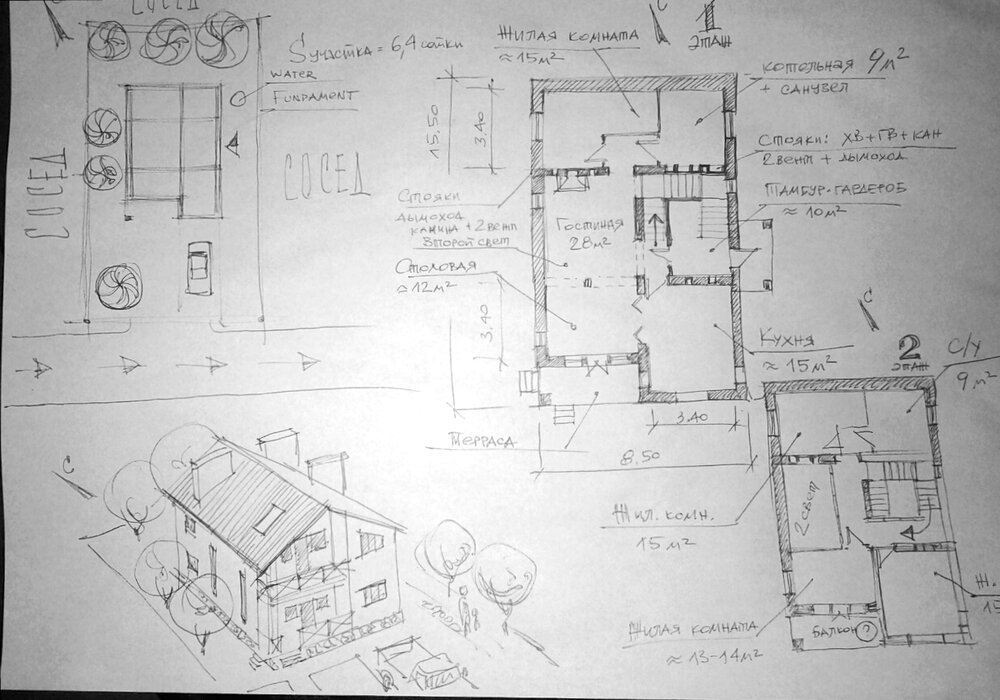 СОСЕД
С
Sучастка = 6,4 сотки
WATER
FUNDAMENT
СОСЕД
СОСЕД
1
ЭТАЖ
С
Жилая комната
≈15м²
котельная 9м²
+ санузел
Стояки: ХВ+ГВ+КАН
2вент + дымоход
Тамбур-гардероб
≈ 10м²
15.50
3.40
Стояки
дымоход
камина + 2вент
Второй свет
Гостиная
28м²
Столовая
≈12м²
3.40
Кухня
≈ 15м²
Терраса
3.40
8.50
С
2
ЭТАЖ
С/У
9м²
Жил. комн.
15м²
2 свет
Ж.
15
Жилая комната
≈ 13-14м²
БАЛКОН ?
С